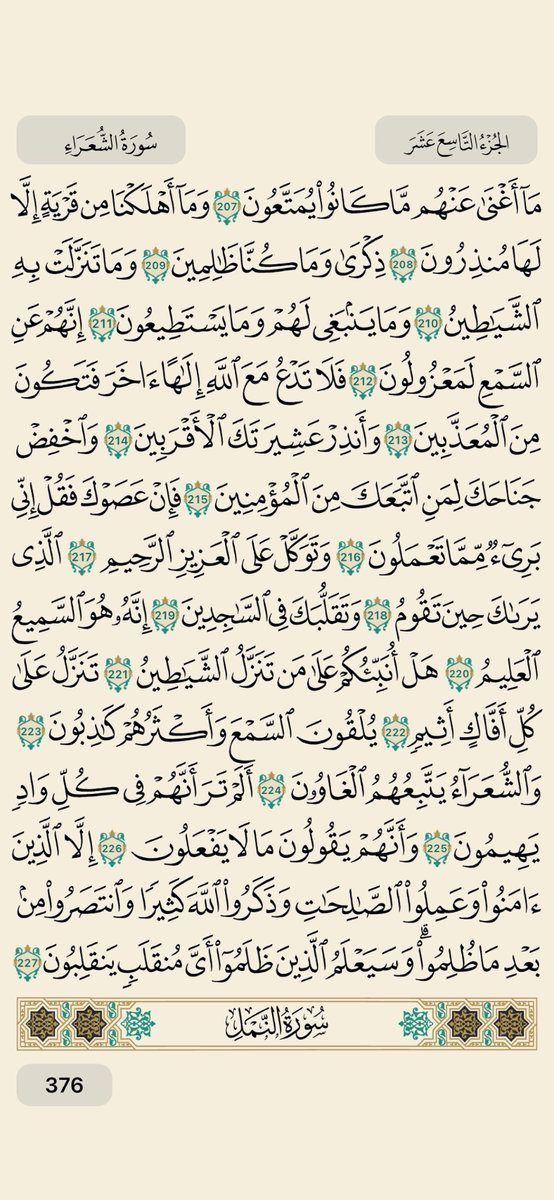 الجُزْءُ التَّاسِعَ عَشَرَ
سُورَةُ الشُّعَرَاءِ
مَآ أَغْنَىٰ عَنْهُم مَّا كَانُوا۟ يُمَتَّعُونَ 207 وَمَآ أَهْلَكْنَا مِن قَرْيَةٍ إِلَّا
لَهَا مُنذِرُونَ 208 ذِكْرَىٰ وَمَا كُنَّا ظَٰلِمِينَ 209 وَمَا تَنَزَّلَتْ بِهِ
ٱلشَّيَٰطِينُ 210 وَمَا يَنۢبَغِى لَهُمْ وَمَا يَسْتَطِيعُونَ 211 إِنَّهُمْ عَنِ
ٱلسَّمْعِ لَمَعْزُولُونَ 212 فَلَا تَدْعُ مَعَ ٱللَّهِ إِلَٰهًا ءَاخَرَ فَتَكُونَ
مِنَ ٱلْمُعَذَّبِينَ 213 وَأَنذِرْ عَشِيرَتَكَ ٱلْأَقْرَبِينَ 214 وَٱخْفِضْ
جَنَاحَكَ لِمَنِ ٱتَّبَعَكَ مِنَ ٱلْمُؤْمِنِينَ 215 فَإِنْ عَصَوْكَ فَقُلْ إِنِّى
بَرِىٓءٌ مِّمَّا تَعْمَلُونَ 216 وَتَوَكَّلْ عَلَى ٱلْعَزِيزِ ٱلرَّحِيمِ 217 ٱلَّذِى
يَرَىٰكَ حِينَ تَقُومُ 218 وَتَقَلُّبَكَ فِى ٱلسَّٰجِدِينَ 219 إِنَّهُۥ هُوَ ٱلسَّمِيعُ
ٱلْعَلِيمُ 220 هَلْ أُنَبِّئُكُمْ عَلَىٰ مَن تَنَزَّلُ ٱلشَّيَٰطِينُ 221 تَنَزَّلُ عَلَىٰ
كُلِّ أَفَّاكٍ أَثِيمٍ 222 يُلْقُونَ ٱلسَّمْعَ وَأَكْثَرُهُمْ كَٰذِبُونَ 223
وَٱلشُّعَرَآءُ يَتَّبِعُهُمُ ٱلْغَاوُۥنَ 224 أَلَمْ تَرَ أَنَّهُمْ فِى كُلِّ وَادٍ
يَهِيمُونَ 225 وَأَنَّهُمْ يَقُولُونَ مَا لَا يَفْعَلُونَ 226 إِلَّا ٱلَّذِينَ
ءَامَنُوا۟ وَعَمِلُوا۟ ٱلصَّٰلِحَٰتِ وَذَكَرُوا۟ ٱللَّهَ كَثِيرًا وَٱنتَصَرُوا۟ مِنۢ
بَعْدِ مَا ظُلِمُوا۟ ۗ وَسَيَعْلَمُ ٱلَّذِينَ ظَلَمُوٓا۟ أَىَّ مُنقَلَبٍ يَنقَلِبُونَ 227
سُورَةُ النَّمْلِ
376